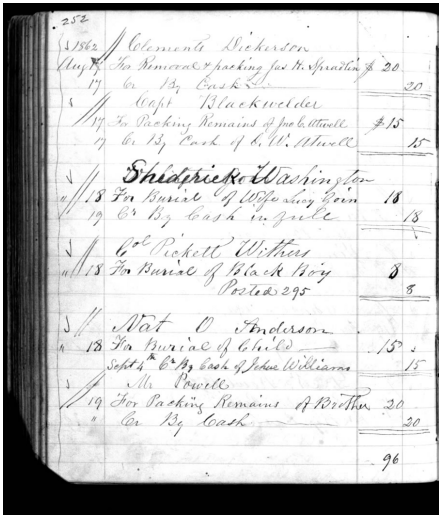 252
1862 Clements Dickerson
Aug 17 For Removal & packing Jas H. Spradlin $ 20
17 Cr By Cash 20
Capt Blackwelder
17 For Packing Remains of Jno C. Atwell $ 15
17 Cr By Cash of C. W. Atwell 15
Shedrick Washington
" 18 For Burial of Wife Lucy Goin 18
19 Cr By Cash in full 18
Col Pickett Withers
" 18 For Burial of Black Boy 8
Posted 295 8
Nat O Anderson
" 18 For Burial of Child 15
Sept 4th Cr By Cash of Williams 15
Mr Powell
19 For Packing Remains A Brother 20
" Cr By Cash 20
96